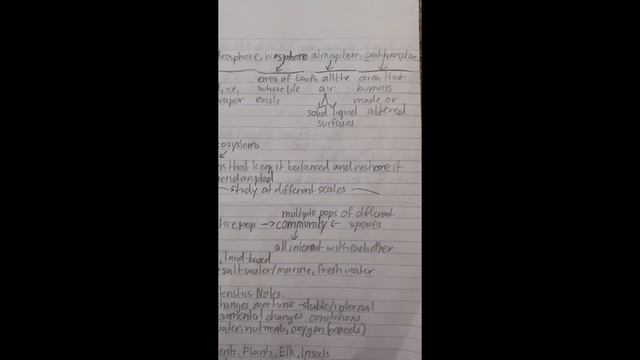 drosphere, biosphere atmosphere, anthrosphere
area of Earth all the area that
, ice, where life air humans
vapor exists made or
solid liquid altered
surfaces
cosystems
ns that keep it balanced and restore it
study at different scales
multiple pops of different
tire pop → community ← species
all interact with each other
, land-based
salt water/marine, fresh water
Notes:
changes over time - stable/internal
onmental changes conditions
water, nutrients, oxygen (needs)
ents. Plants, Elk, Insects